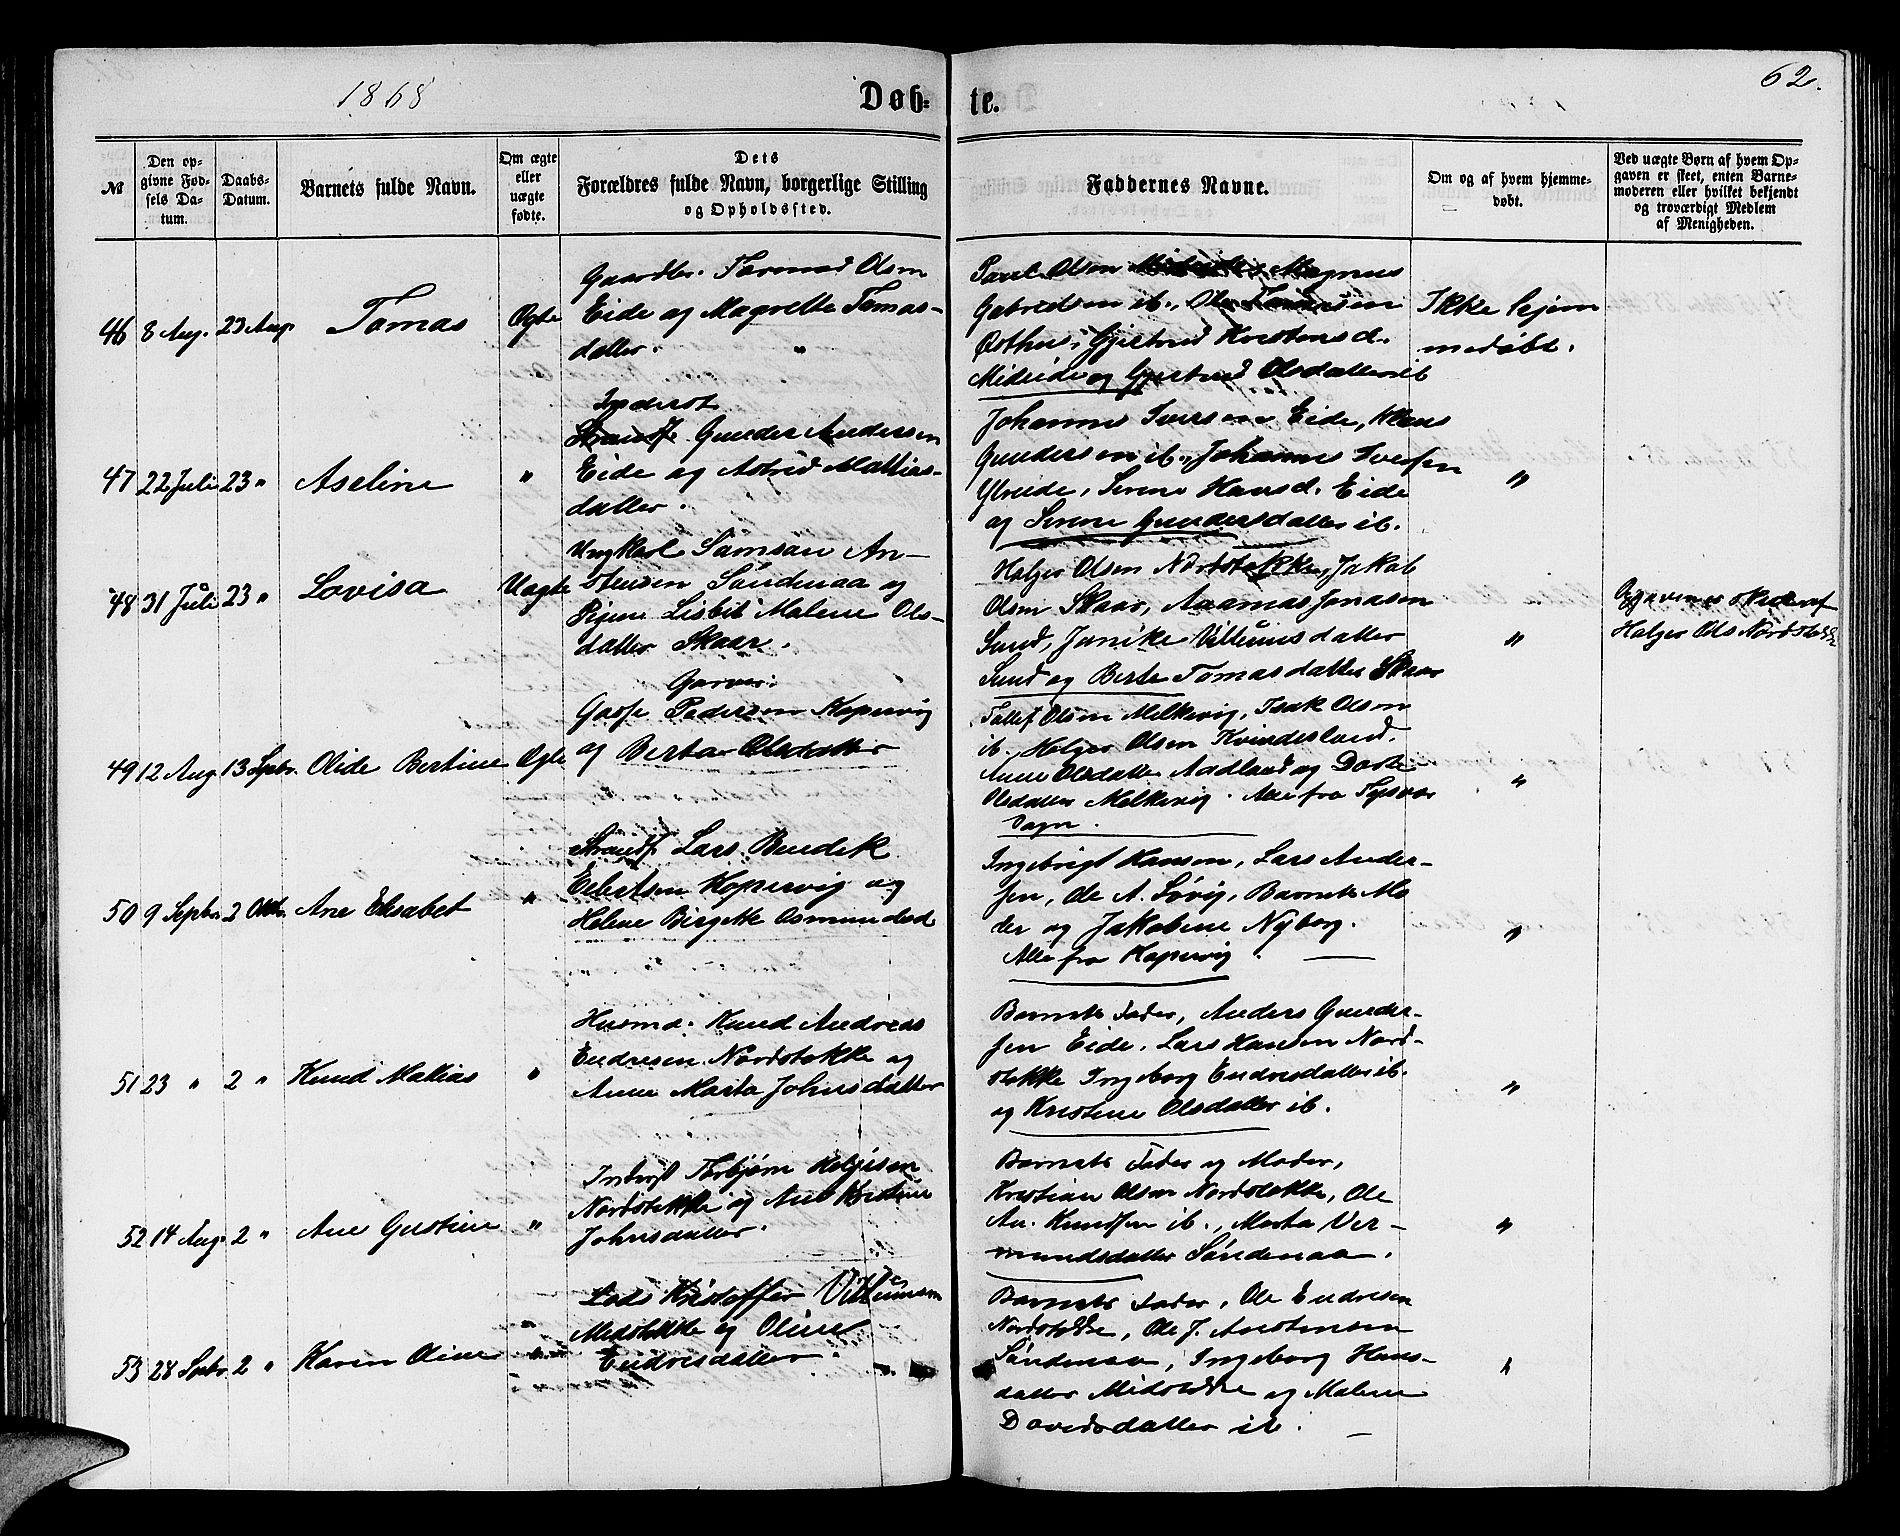 1868
Døb-
te.
62.
№
Den op-
givne Fød-
sels Da-
tum.
Daabs-
Datum.
Barnets fulde Navn.
Om ægte
eller
uægte
fødte.
Dets
Forældres fulde Navn, borgerlige Stilling
og Opholdssted.
Faddernes Navne.
Om og af hvem hjemme-
døbt.
Ved uægte Børn af hvem Op-
gaven er skeet, enten Barne-
moderen eller hvilket bekjendt
og troværdigt Medlem
af Menigheden.
46 8 Aug. 23 Aug. Tomas Ægte
Gaardbr. Tormod Olsen
Eide og Magrethe Tomas-
datter.
Olsen Magnus
Gabrielsen ib., Ole
Østhus, Gjertrud Korstensd.
Mideide og Gjertrud Olsdatter ib
Ikke hjem
medøbt.
47 22 Juli 23 " Aseline "
Inderst
Gunder Andersen
Eide og Astrid Mattias-
datter.
Johannes Iversen Eide, Klaus
Gundersen ib., Johannes Iversen
Ytreide, Serene Hansd. Eide
og Serene Gundersdatter ib.
"
48 31 Juli 23 " Lovisa Uægte
Ungkarl Samson An-
stensen Søndenaa og
Pigen Lisbet Malene Ols-
datter Skaar.
Holger Olsen Nordstokke, Jakob
Olsen Skaar, Aamas Jonasen
Sund, Janike Villumsdatter
Sund og Berte Tomasdatter Skaar
"
Opgaven er skede af
Holger Ols Nordstokke
49 12 Aug. 13 Septbr. Olide Bertine Ægte
Garver:
Goose Pedersen Kopervig
og Berta Olsdatter
Tollef Olsen Melkevig, Isak Olsen
ib., Holger Olsen Kvindesland.
Anne Olsdatter Aadland og Dorte
Olsdatter Melkevig. Alle fra Tysvær
Sogn.
"
50 9 Septbr. 2 Oktbr. Ane Elisabet "
Strands. Lars Bendik
Eilertsen Kopervig og
Helene Birgitte Osmundsd
Ingebrigt Hansen, Lars Ander-
sen, Ole A. Søvig, Barnets Mo
der og Jakobine Nyborg.
Alle fra Kopervig
"
51 23 " 2 " Knud Matias "
Husmd. Knud Andreas
Endresen Nordstokke og
Anne Marta Johnsdatter
Barnets Fader, Anders Gunder-
sen Eide, Lars Hansen Nord-
stokke Ingeborg Endresdatter ib.
og Kristine Olsdatter ib.
"
52 14 Aug. 2 " Ane Gustine "
Inderst Torbjørn Helgesen
Nordstokke og Ane Kristine
Johnsdatter.
Barnets Fader og Moder,
Kristian Olsen Nordstokke, Ole
An. Knudsen ib., Marta Ver-
mundsdatter Søndenaa.
"
53 28 Septbr. 2 " Karen Oline "
Lods Kristoffer Villumsen
Midstokke og Oline
Endresdatter.
Barnets Fader, Ole Endresen
Nordstokke, Ole J. Anstensen
Søndenaa, Ingeborg Hans-
datter Midstokke og Malene
Davidsdatter ib.
"